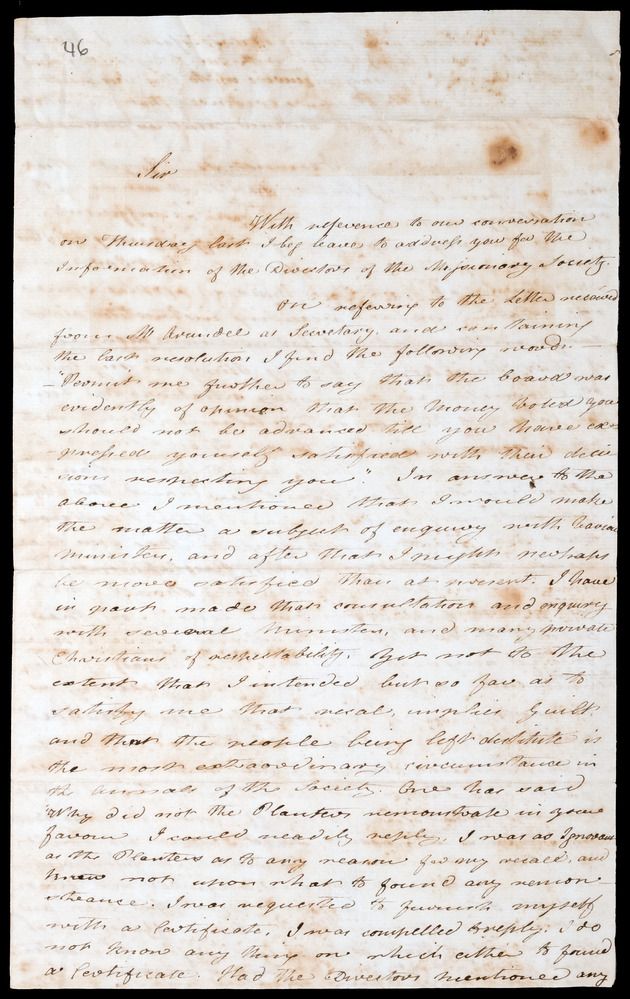 46
Sir
With reference to our conversation
on Thursday last I beg leave to address you for the
Information of the Directors of the Missionary Society.
On referring to the Letter received
from Mr Arundel as Secretary, and containing
the last resolution I find the following words. —
— "Permit me further to say that the board was
evidently of opinion that the Money Voted you
should not be advanced till you have ex-
-pressed yourself satisfied with their deci
sions respecting you". In answer to the
above I mentioned that I would make
the matter a subject of enquiry with various
Ministers, and after that I might perhaps
be more satisfied than at present. I have
in part made that consultation and enquiry
with several Ministers, and many private
Christians of respectability. Yet not to the
extent that I intended but so far as to
satisfy me that recal, implies Guilt.
and that the people being left destitute is
the most extraordinary circumstance in
the annals of the Society. One has said
"Why did not the Planters remonstrate in your
favour I could readily reply. I was as Ignorant
as the Planters as to any reason for my recall, and
knew not upon what to found any remon-
strance. I was requested to furnish myself
with a Certificate. I was compelled to reply. I do
not know any thing on which either to found
a Certificate. Had the Directors mentioned any